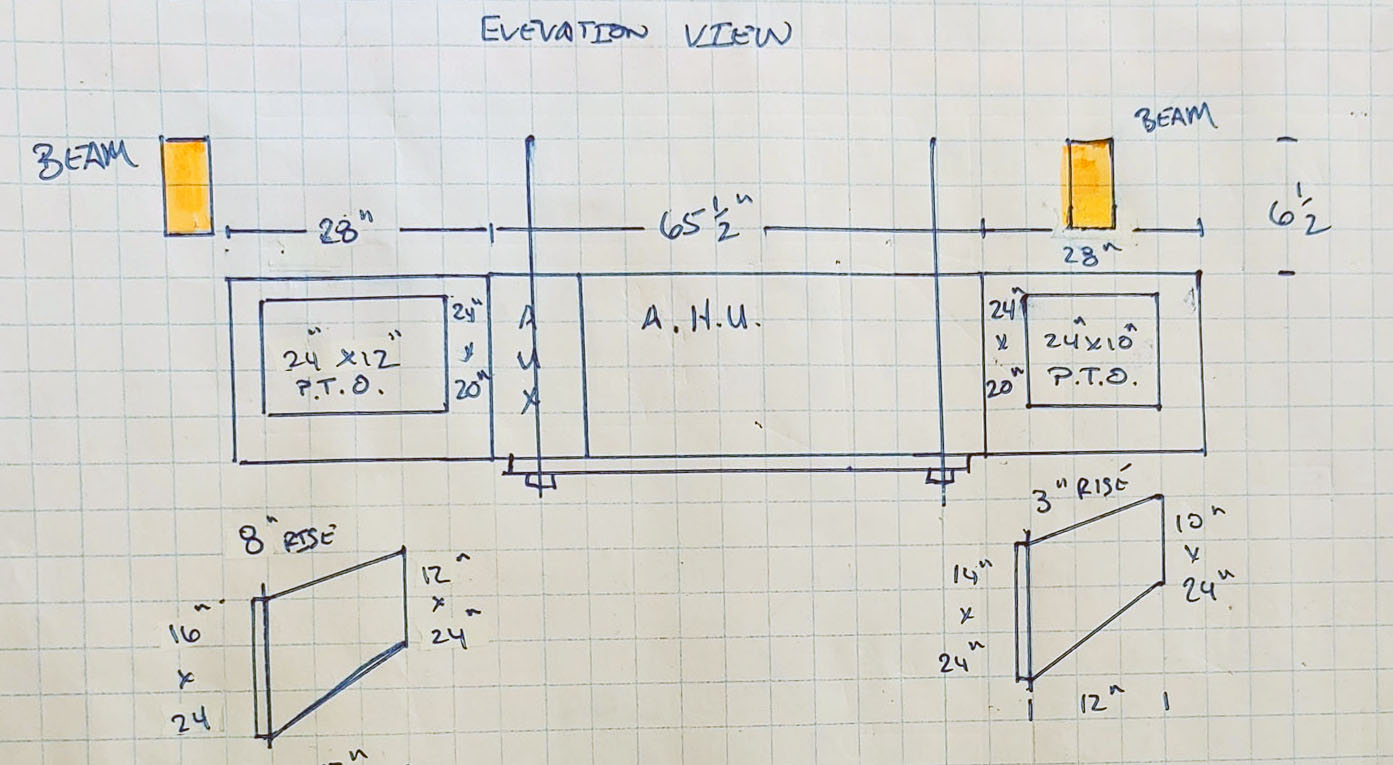 ELEVATION VIEW
BEAM
BEAM
28"
65 1/2"
28"
6 1/2
24" x 12"
P.T.O.
24"
x
20"
A
U
X
A.H.U.
24"
x
20"
24" x 10"
P.T.O.
8" RISE
16"
x
24
12"
x
24"
3" RISE
14"
x
24"
10"
x
24"
12"